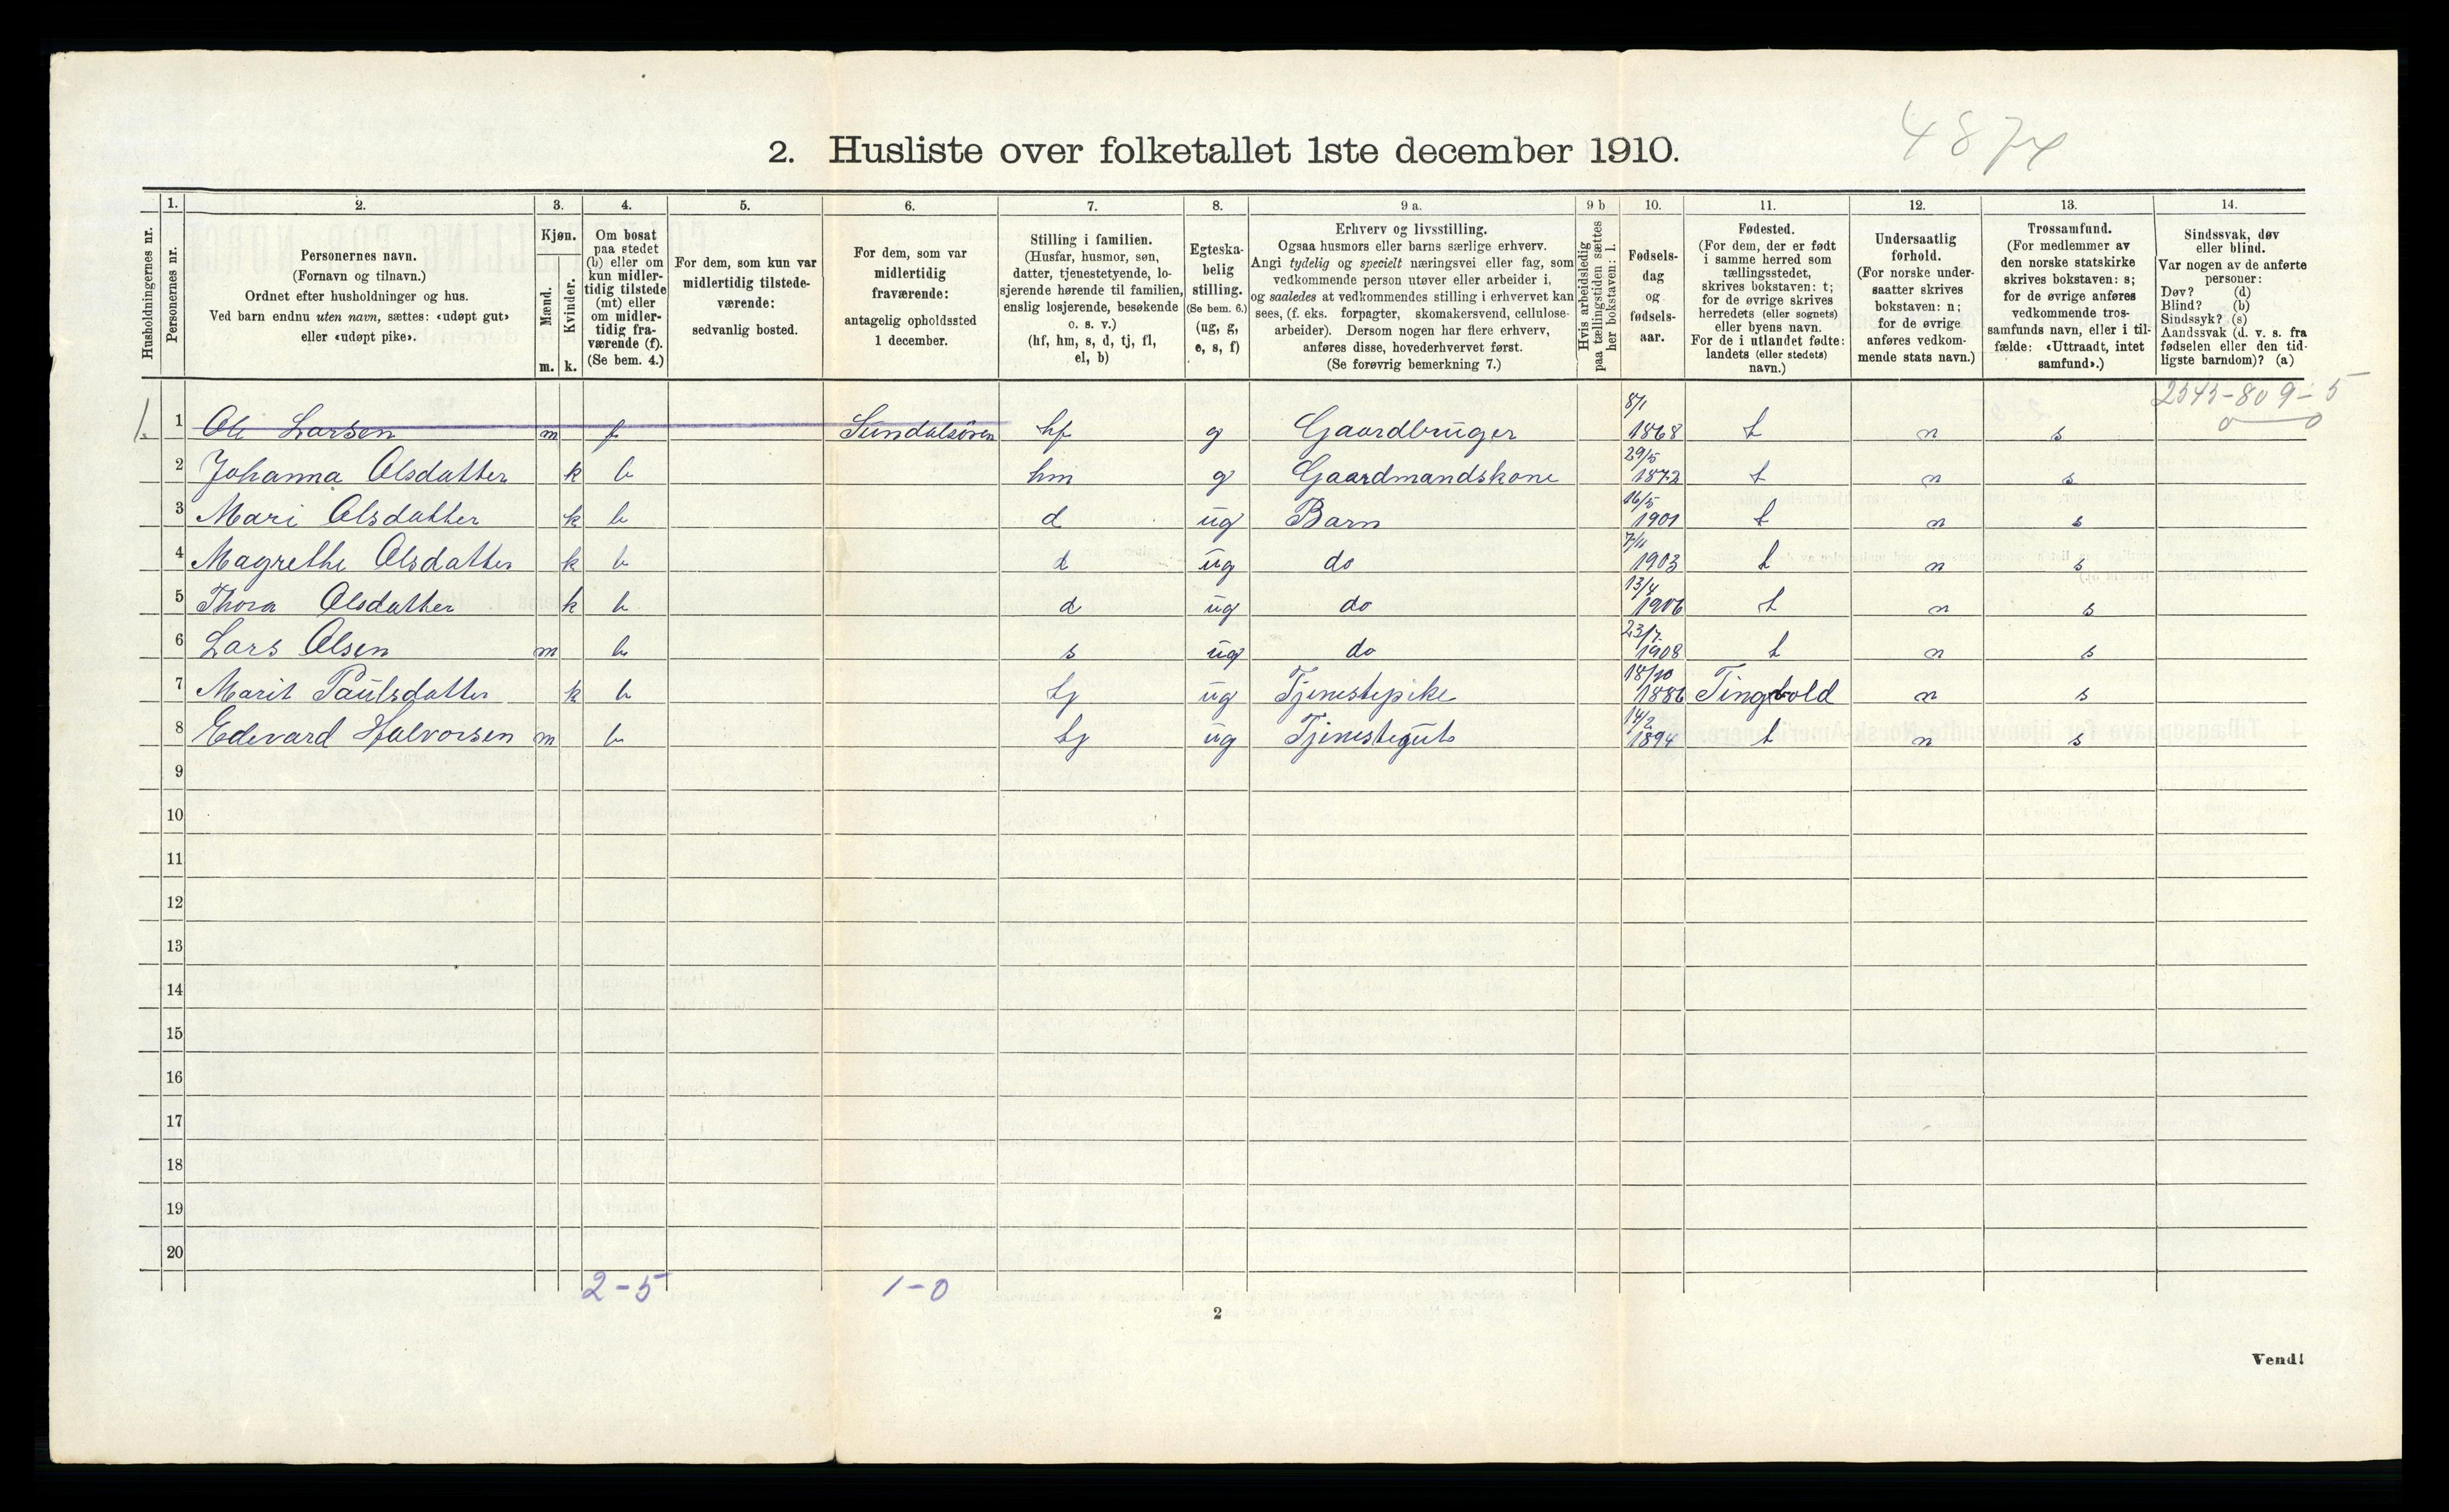 4874
2. Husliste over folketallet 1ste december 1910.
Husholdningernes nr.
1.
Personernes nr.
2.
Personernes navn.
(Fornavn og tilnavn.)
Ordnet efter husholdninger og hus.
Ved barn endnu uten navn, sættes: «udøpt gut»
eller «udøpt pike».
3.
Kjøn.
Mænd.
Kvinder.
m. k.
4.
Om bosat
paa stedet
(b) eller om
kun midler-
tidig tilstede
(mt) eller
om midler-
tidig fra-
værende (f).
(Se bem. 4.)
5.
For dem, som kun var
midlertidig tilstede-
værende:
sedvanlig bosted.
6.
For dem, som var
midlertidig
fraværende:
antagelig opholdssted
1 december.
7.
Stilling i familien.
(Husfar, husmor, søn,
datter, tjenestetyende, lo-
sjerende hørende til familien,
enslig losjerende, besøkende
o. s. v.)
(hf, hm, s, d, tj, fl,
el, b)
8.
Egteska-
belig
stilling.
(Se bem. 6.)
(ug, g,
e, s, f)
9 a.
Erhverv og livsstilling.
Ogsaa husmors eller barns særlige erhverv.
Angi tydelig og specielt næringsvei eller fag, som
vedkommende person utøver eller arbeider i,
og saaledes at vedkommendes stilling i erhvervet kan
sees, (f. eks. forpagter, skomakersvend, cellulose-
arbeider). Dersom nogen har flere erhverv,
anføres disse, hovederhvervet først.
(Se forøvrig bemerkning 7.)
9 b
Hvis arbeidsledig
paa tællingstiden sættes
her bokstaven: l.
10.
Fødsels-
dag
og
fødsels-
aar.
11.
Fødested.
(For dem, der er født
i samme herred som
tællingsstedet,
skrives bokstaven: t;
for de øvrige skrives
herredets (eller sognets)
eller byens navn.
For de i utlandet fødte:
landets (eller stedets)
navn.)
12.
Undersaatlig
forhold.
(For norske under-
saatter skrives
bokstaven: n;
for de øvrige
anføres vedkom-
mende stats navn.)
13.
Trossamfund.
(For medlemmer av
den norske statskirke
skrives bokstaven: s;
for de øvrige anføres
vedkommende tros-
samfunds navn, eller i til-
fælde: «Uttraadt, intet
samfund».)
14.
Sindssvak, døv
eller blind.
Var nogen av de anførte
personer:
Døv? (d)
Blind? (b)
Sindssyk? (s)
Aandssvak (d. v. s. fra
fødselen eller den tid-
ligste barndom)? (a)
2345-809-5
0 0
1. 1 Ole Larsen m f Sundalsøren hf g Gaardbruger 8/1 1868 t n s
2 Johanna Olsdatter k b hm g Gaardmandskone 29/5 1872 t n s
3 Mari Olsdatter k b d ug Barn 16/5 1901 t n s
4 Magrethe Olsdatter k b d ug do 7/11 1903 t n s
5 Thora Olsdatter k b d ug do 13/4 1906 t n s
6 Lars Olsen m b s ug do 23/7 1908 t n s
7 Marit Paulsdatter k b tj ug Tjenestepike 18/10 1886 Tingvold n s
8 Edevard Halvorsen m b tj ug Tjenestegut 14/2 1894 t n s
9
10
11
12
13
14
15
16
17
18
19
20
2-5 1-0
2
Vend!